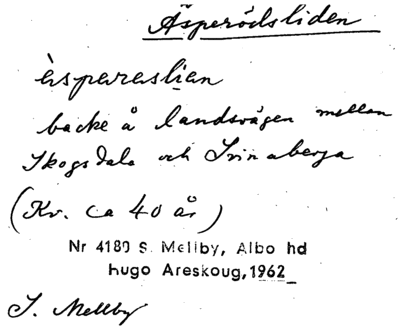 Äsperödsliden
èsparaslian
backe å landsvägen mellan
Skogsdala och Svinaberga
(Kv. ca 40 år)
Nr 4180 S. Mellby, Albo hd
Hugo Areskoug, 1962
S. Mellby